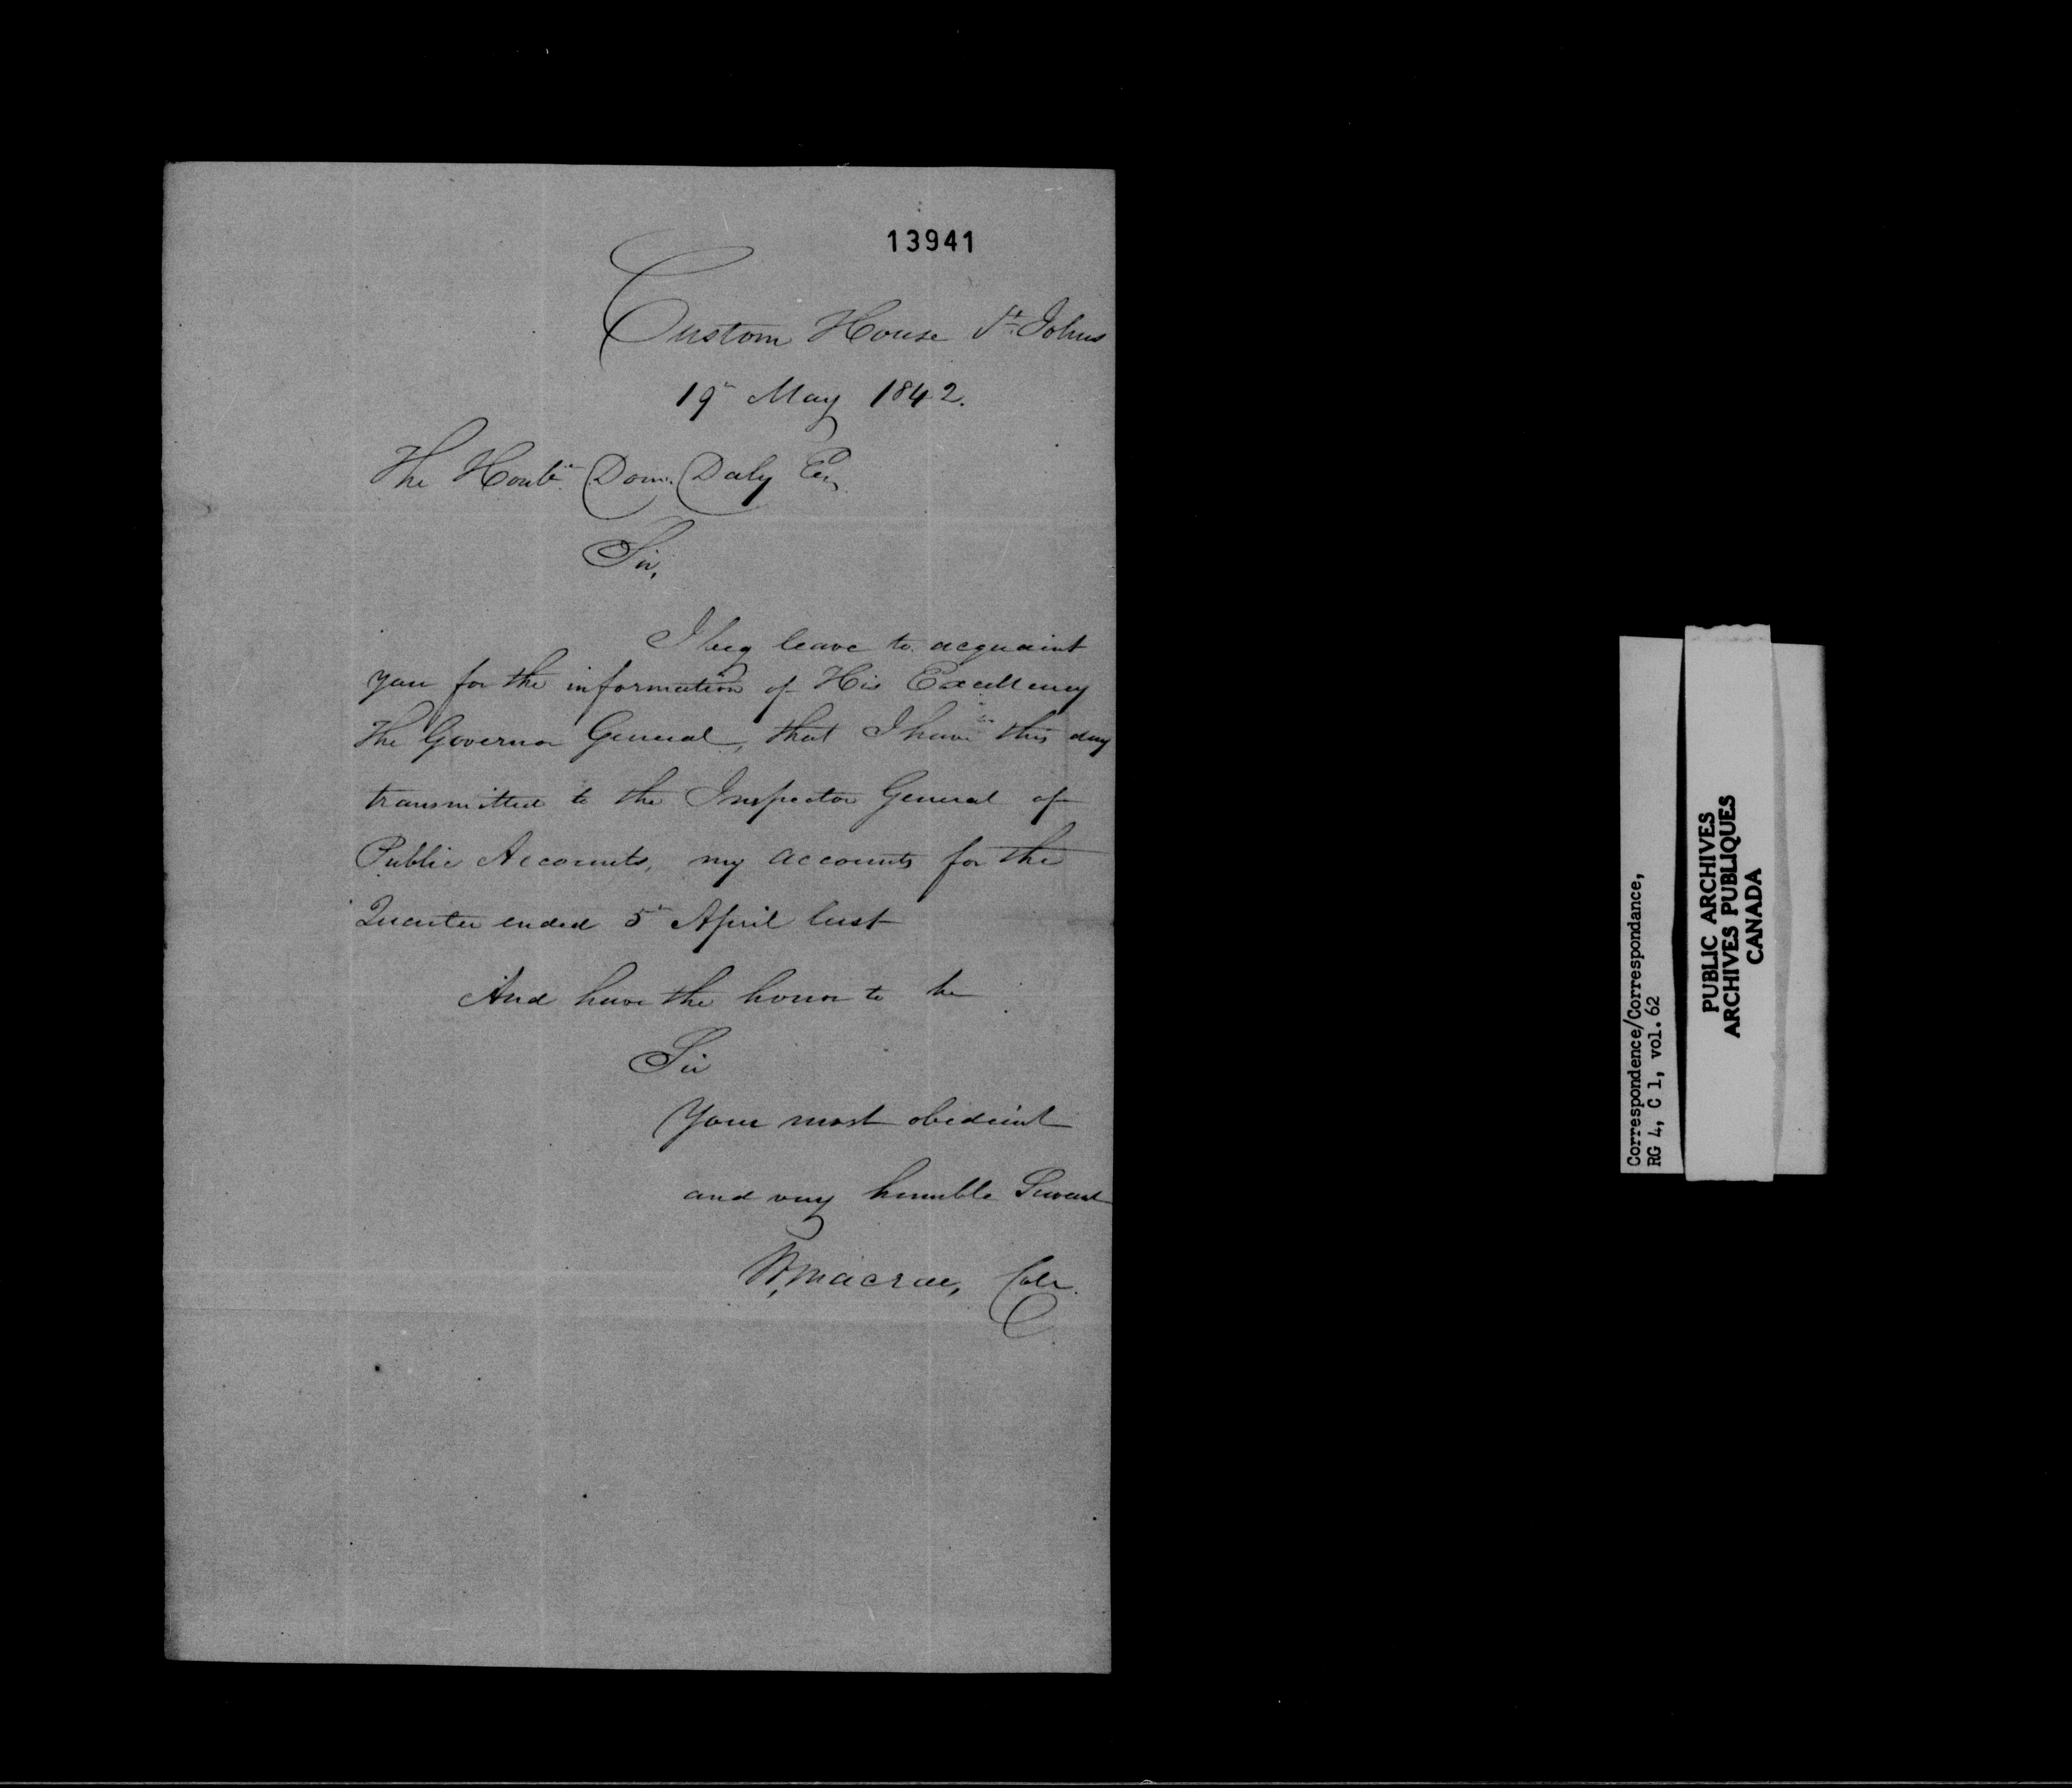 13941
Custom House St. Johns
19th May 1842.
The Honble. Dom. Daly Esq
Sir,
I beg leave to acquaint
you for the information of His Excellency
the Governor General, that I have this day
transmitted to the Inspector General of
Public Accounts, my accounts for the
Quarter ended 5th April last
And have the honor to be
Sir
Your most obedient
and very humble Servant
W. Macrae, Colr.
Correspondence/Correspondance,
RG 4, C 1, vol. 62
PUBLIC ARCHIVES
ARCHIVES PUBLIQUES
CANADA